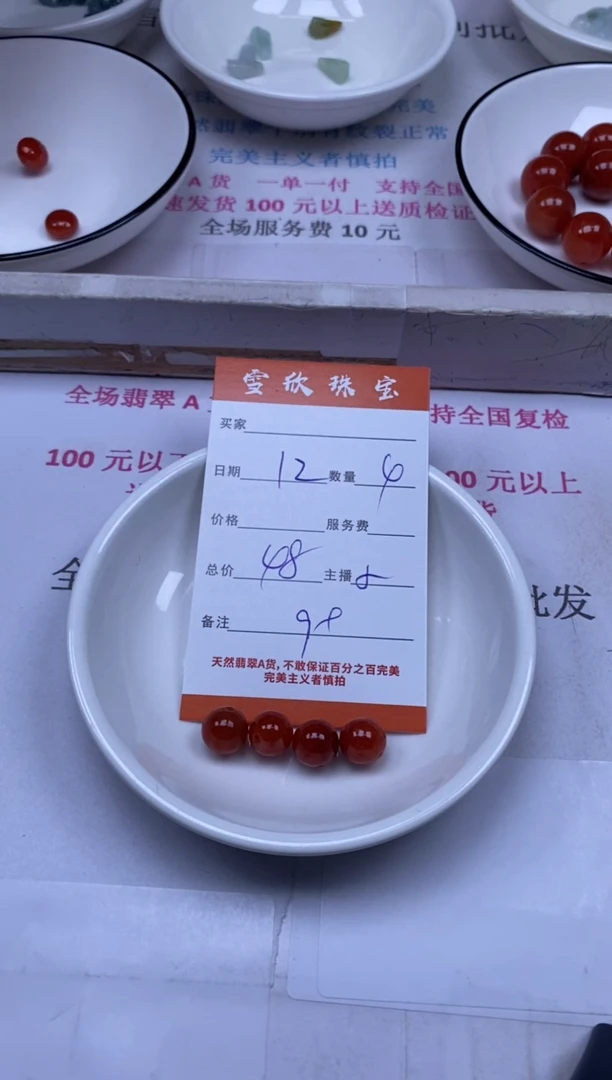 完美
然翡翠
有纹裂正常
完美主义者慎拍
A 货 一单一付 支持全国
速发货 100 元以上送质检证
全场服务费 10 元
全场翡翠 A
持全国复检
100 元以
00 元以上
货
全
批发
雪欣珠宝
买家
日期 12 数量 4
价格 服务费
总价 48 主播
备注 98
天然翡翠A货,不敢保证百分之百完美
完美主义者慎拍